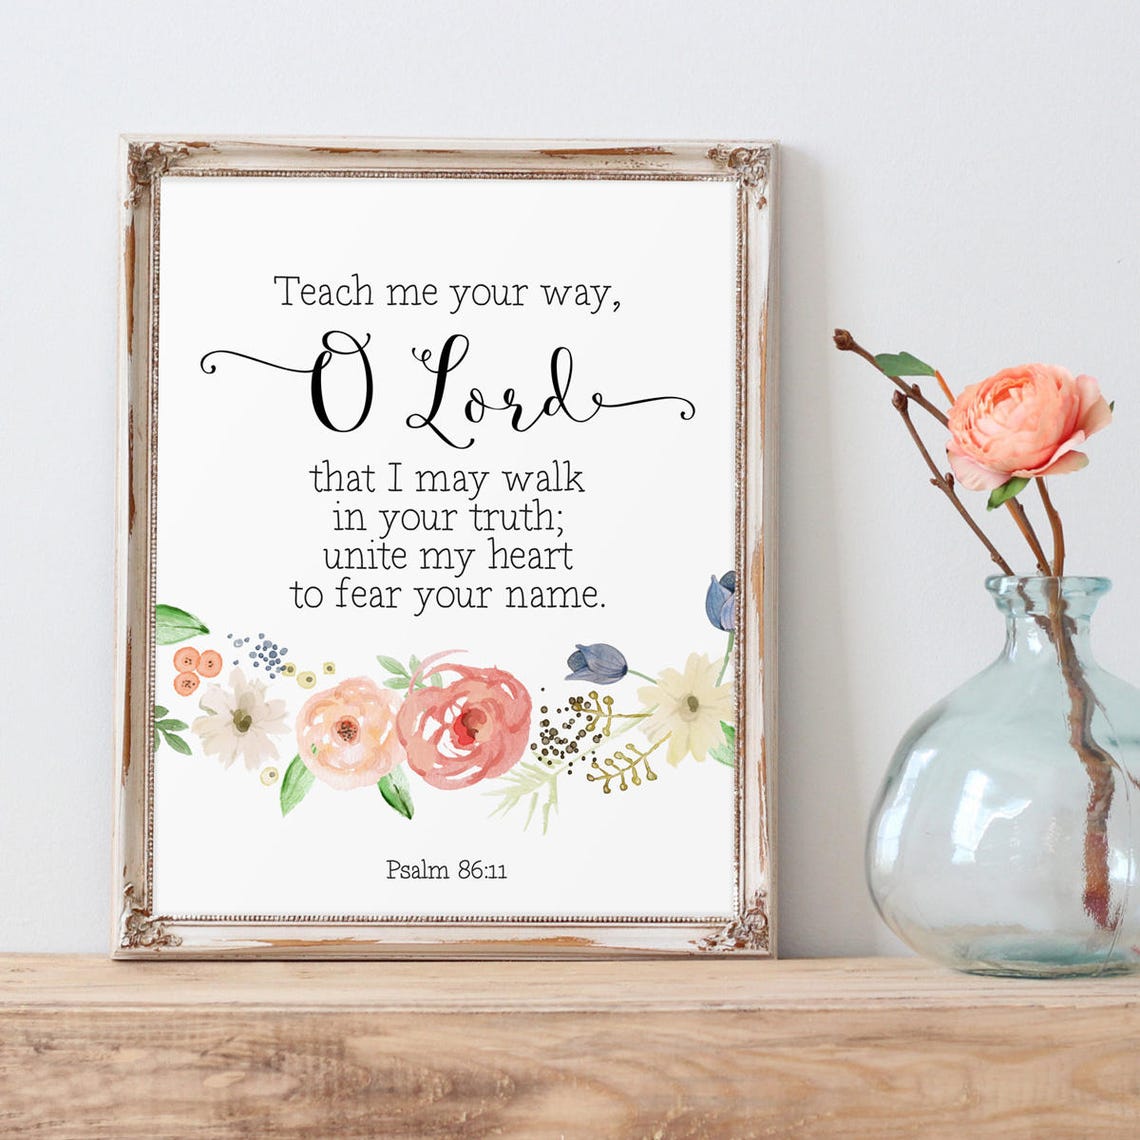 Teach me your way,
O Lord
that I may walk
in your truth;
unite my heart
to fear your name.
Psalm 86:11